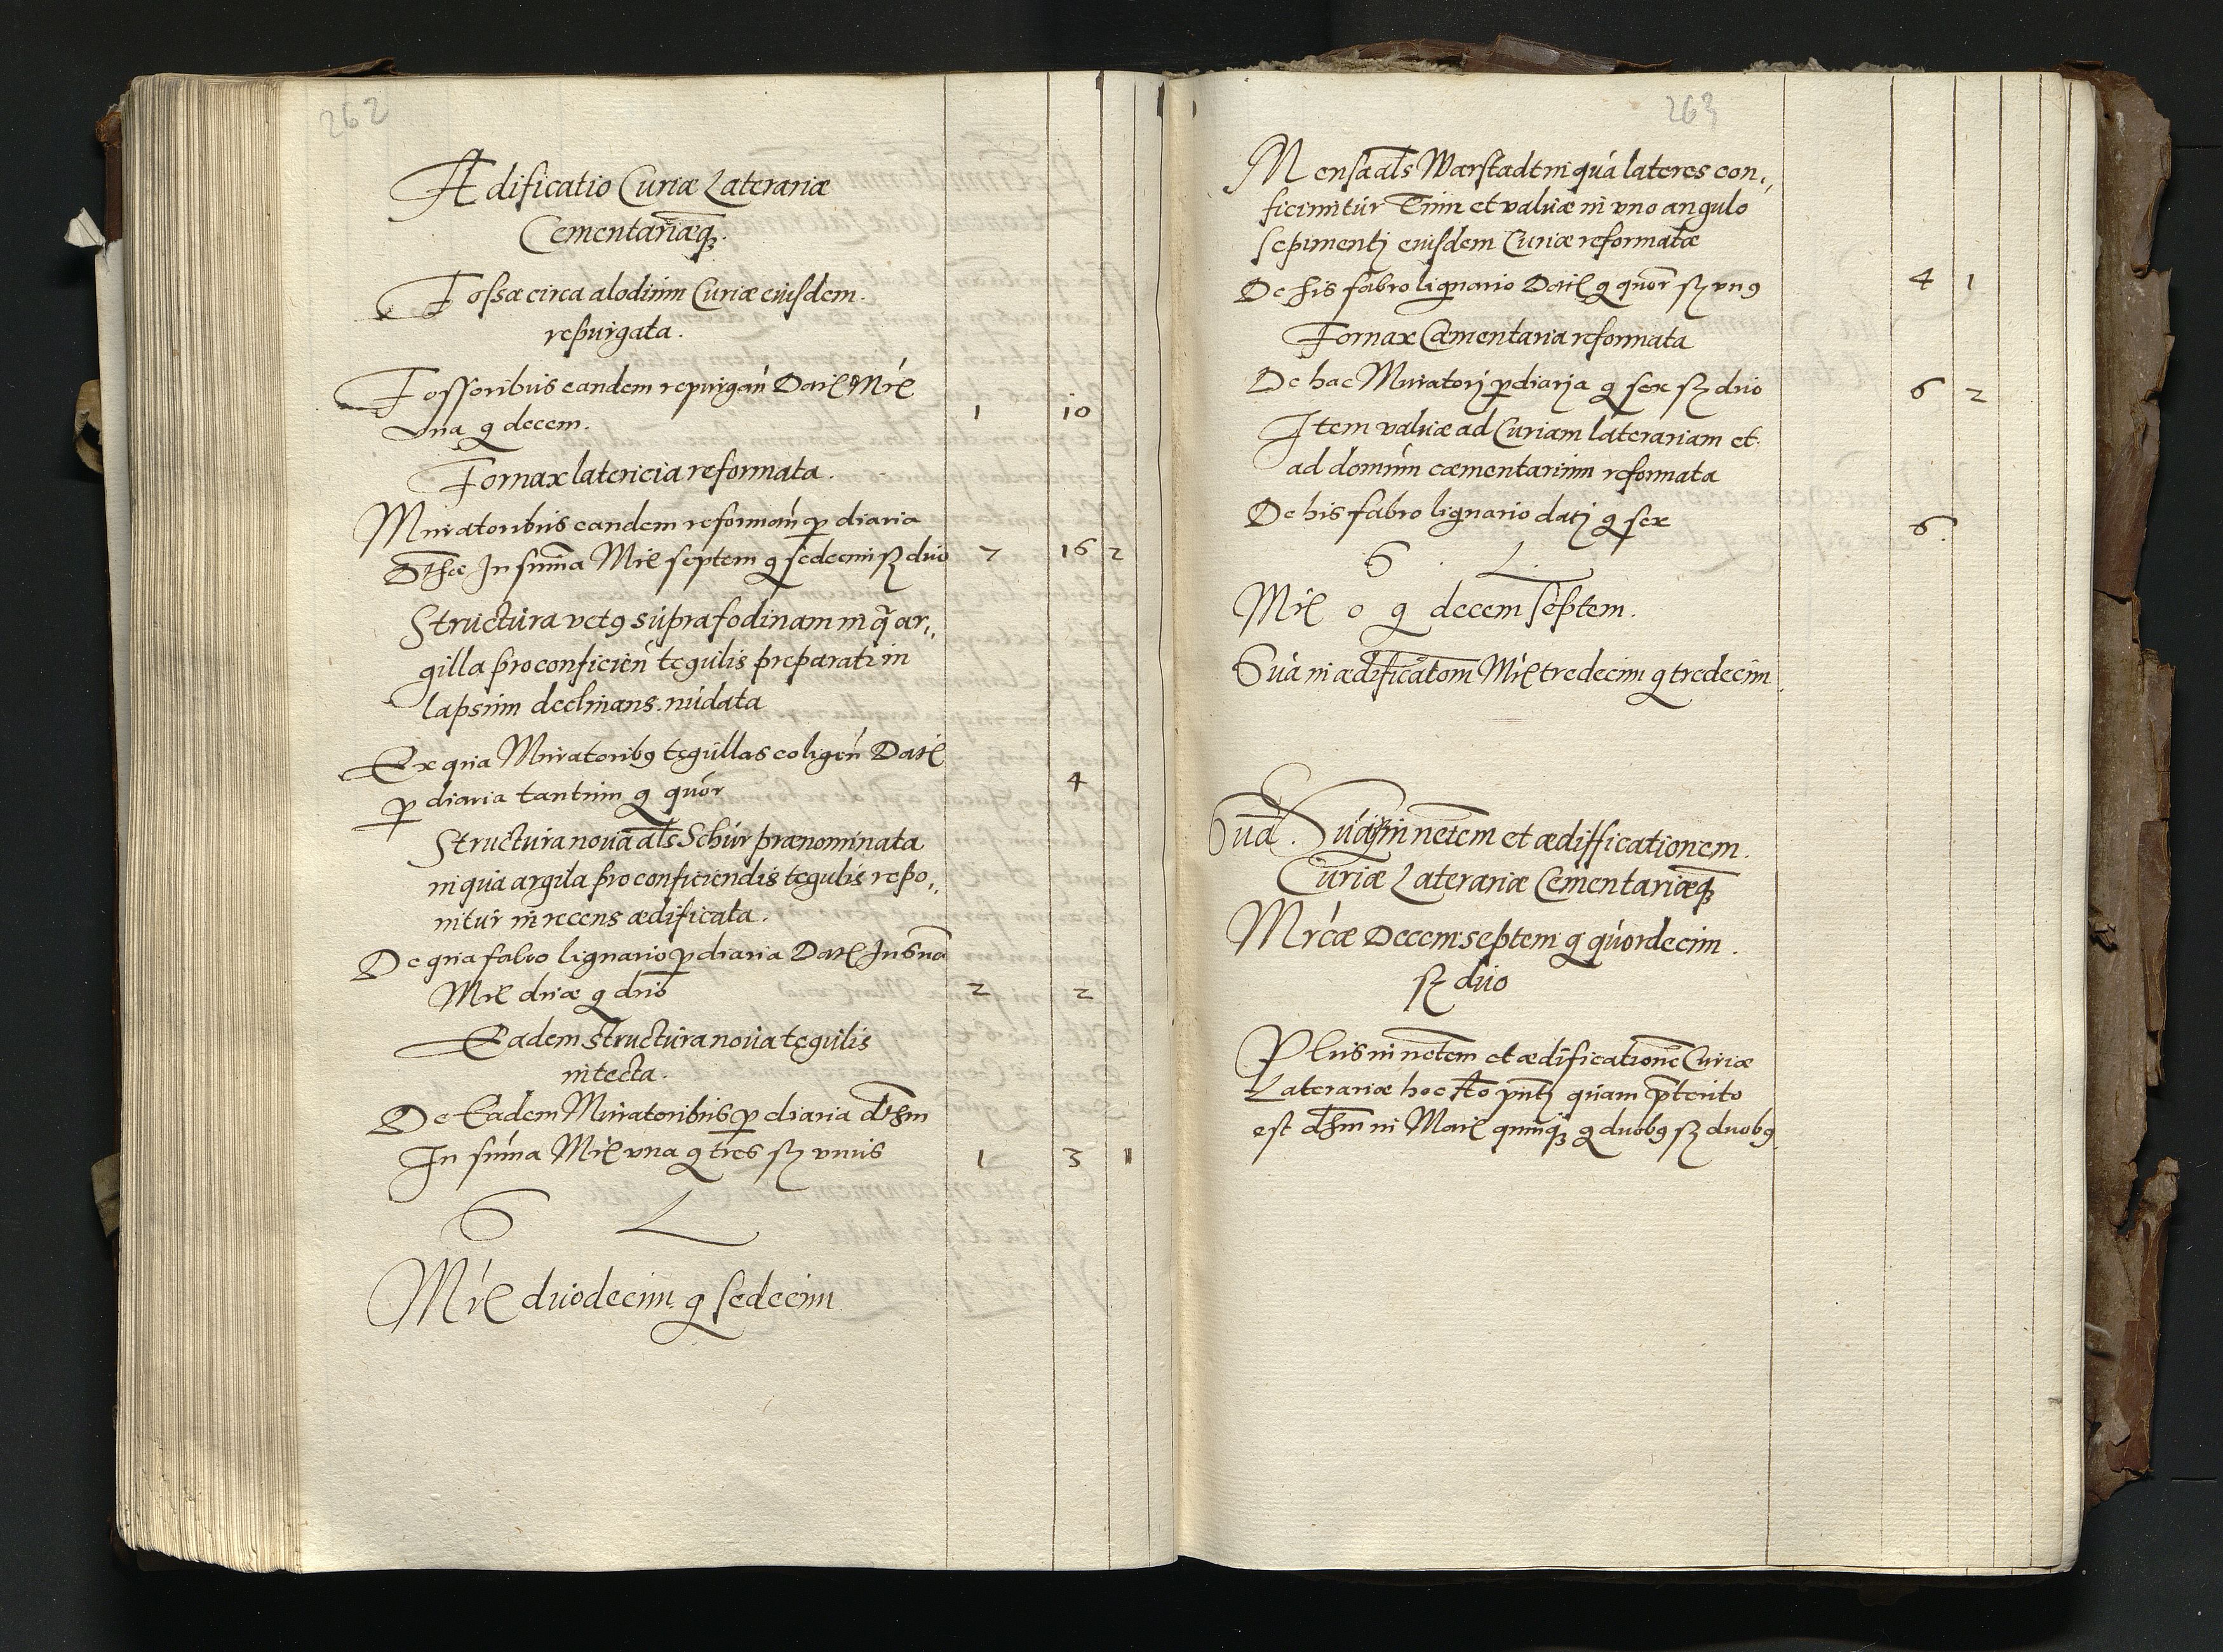 262
Ædificatio Curiæ Laterariæ
Cementariæqꝫ
Fossa circa alodium Curiæ eiusdem
repurgata.
Fossoribus eandem repurgań Datꝭ Mrꝭ
Una g decem. 1 10
Fornax latericia reformata.
Muratoribus eandem reformań ꝑ diaria
In sum̄a Mrꝭ septem g sedecim sꝫ duo 7 16 2
Structura vetꝰ supra fodinam in q̄ ar„
gilla pro conficień tegulis preparatr in
lapsum declinans. nudata
Ex qua Muratoribꝰ tegullas coligeń Datꝭ
ꝑ diaria tantum g quor 4
Structura noua als̄ Schur prænominata
in qua argila pro conficiendis tegulis repo„
nitur in recens ædificata.
De qua fabro lignario ꝑ diaria Datꝭ In sum̄a
Mrꝭ duæ g duo 2 2
Eadem structura noua tegulis
intecta.
De Eadem Muratoribus ꝑ diaria dt̄hm
In sum̄a Mrꝭ vna g tres sꝫ vnus 1 3 1
S L
Mrꝭ duodecim g sedecim
263
Mensa als̄ Warstadt in qua lateres con„
ficiuntur Tum et valuæ in vno angulo
sepimentj eiusdem Curiæ reformatæ
De his fabro lignario Datꝭ g quor sꝫ vnꝰ 4 1
Fornax Cæmentaria reformata
De hac Muratorj ꝑ diarja g sex sꝫ duo 6 2
Item valuæ ad Curiam laterariam et
ad domum cæmentarium reformata
De his fabro lignario datj g sex 6.
S . L.
Mrꝭ 0 g decem septem.
Sūa in ædificat̄om Mrꝭ tredecim g tredecim
Sūa Sūarum in net̄em et ædifficationem.
Curiæ Laterariæ Cementariæqꝫ
Mrcæ Decem septem g quordecim.
sꝫ duo
Plus in net̄em et ædificationē Curiæ
Laterariæ hoc A͞o pn̄tj quam p̄terito
est dt̄hm in Marꝭ quinqꝫ g duobꝰ sꝫ duobꝰ